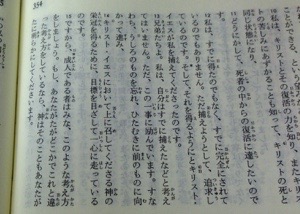 354
10 私は、キリストとその復活の力を知り、また
キリストの苦しみにあずかることも知って、キリストの死と
同じ状態になり、
11 どうにかして、死者の中からの復活に達したいので
す。
12 私は、すでに得たのでもなく、すでに完全にされて
いるのでもありません。ただ捕えようとして、追求し
ているのです。そして、それを得るようにとキリスト・
イエスが私を捕えてくださったのです。
13 兄弟たちよ。私は、自分はすでに捕えたなどと考え
てはいません。ただ、この一事に励んでいます。すな
わち、うしろのものを忘れ、ひたむきに前のものに向
かって進み、
14 キリスト・イエスにおいて上に召してくださる神の
栄冠を得るために、目標を目ざして一心に走っている
のです。
15 ですから、成人である者はみな、このような考え方
をしましょう。もし、あなたがたがどこかでこれと違
った考え方をしているなら、神はそのこともあなたが
たに明らかにしてくださいます。